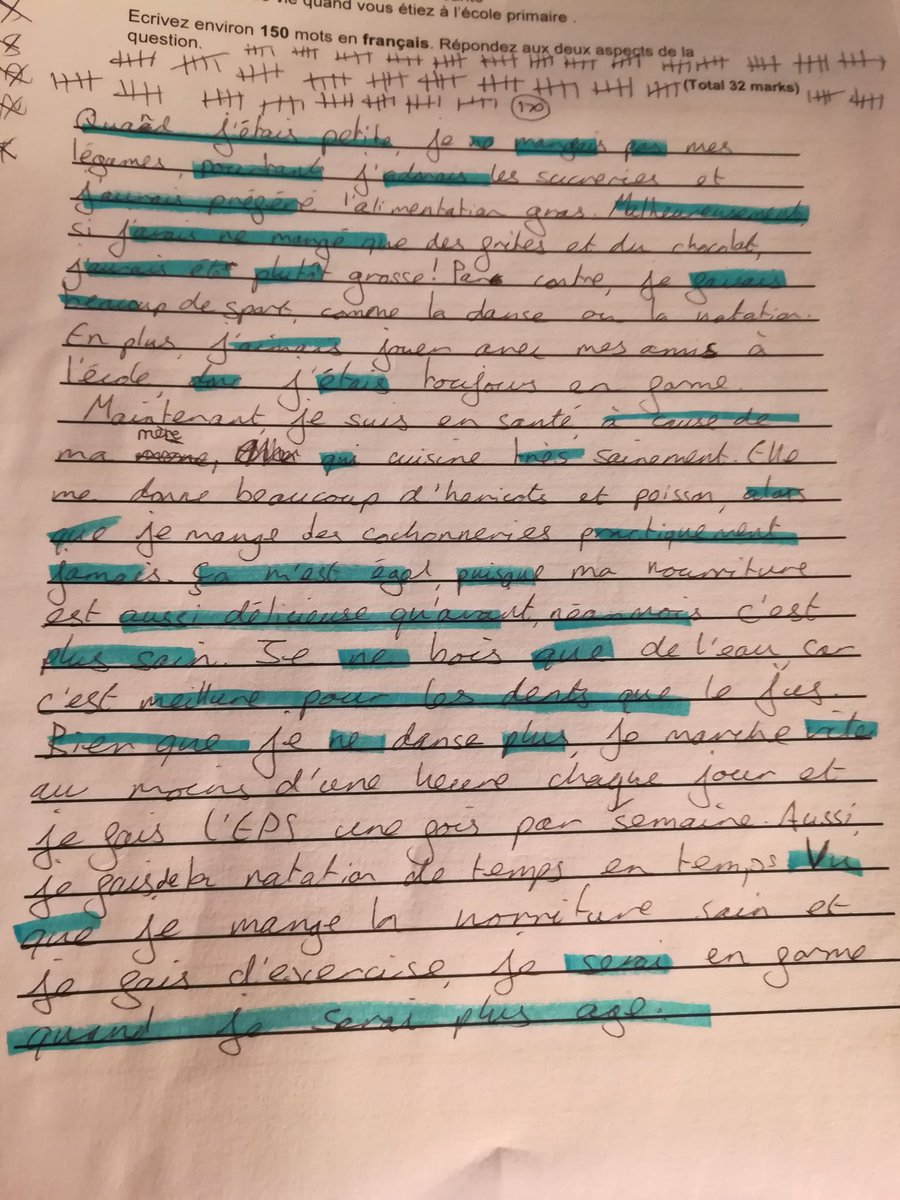 vie quand vous étiez à l'école primaire.
Ecrivez environ 150 mots en français. Répondez aux deux aspects de la
question.
(Total 32 marks)
170
Quand j'étais petite, je ne mangais pas mes
légames, pourtant j'adorais les sucreries et
j'aurais préféré l'alimentation gras. Malheureusement,
si j'avais ne mangé que des frites et du chocolat,
j'aurais été plutôt grosse! Par contre, je faisais
beaucoup de sport, comme la danse ou la natation.
En plus, j'aimais jouer avec mes amis à
l'école, donc j'étais toujours en forme.
Maintenant, je suis en santé, à cause de
ma mère, qui cuisine très sainement. Elle
me donne beaucoup d'haricots et poisson, alors
que je mange des cochonneries practiquement
jamais. Ça m'est égal, puisque ma nourriture
est aussi délicieuse qu'avant, néanmois c'est
plus sain. Je ne bois que de l'eau, car
c'est meillure pour les dents que le jus.
Bien que je ne danse plus, je marche vite
au moins d'une heure chaque jour et
je fais l'EPS une fois par semaine. Aussi,
je fais de la natation de temps en temps. Vu
que je mange la norriture sain et
je fais d'exercise, je serai en forme
quand je serai plus age.